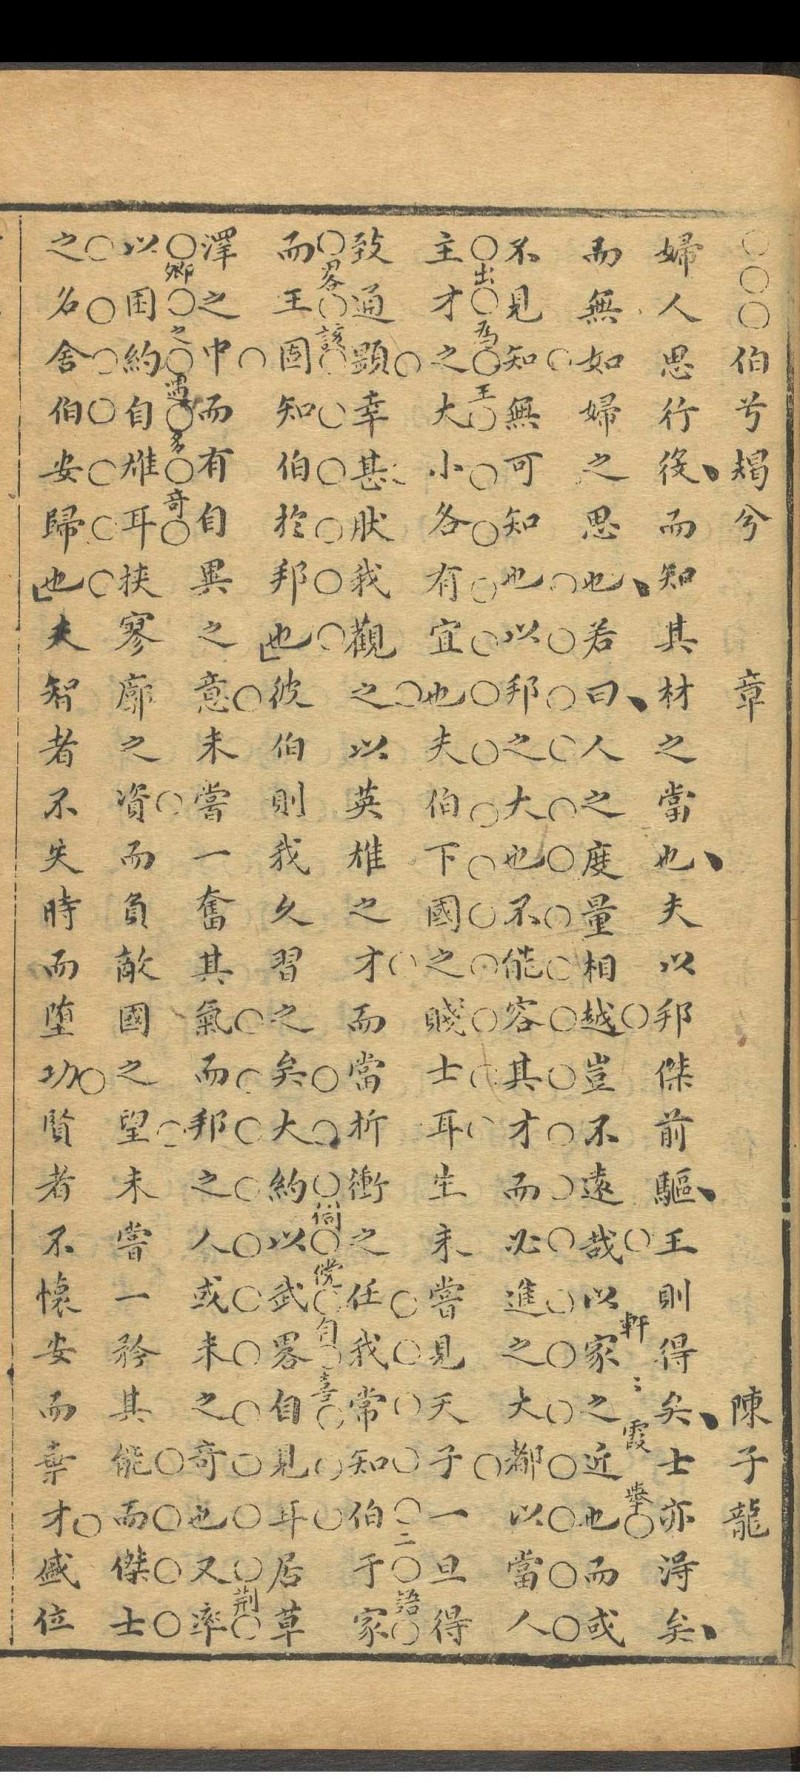 ○○○伯兮朅兮 章 陳子龍
婦人思行役而知其材之當也夫以邦傑前驅王則得矣士亦淂矣
軒〻霞舉
而無如婦之思也若曰人之度量相越豈不遠哉以家之近也而或
不見知無可知也以邦之大也不能容其才而必進之大都以當人
出為王
主才之大小各有宜也夫伯下國之賤士耳生未嘗見天子一旦得
二語
致通顯幸甚肰我觀之以英雄之才而當折衝之任我常知伯于家
畧該
倜儻自喜
而王固知伯於邦也彼伯則我久習之矣大約以武畧自見耳居草
荆
澤之中而有自異之意未嘗一奮其氣而邦之人或未之奇也又率
卿之遇多奇
以困約自雄耳挾寥廓之資而負敵國之望未嘗一矜其能而傑士
之名舍伯安歸也夫智者不失時而墮功賢者不懷安而棄才盛位